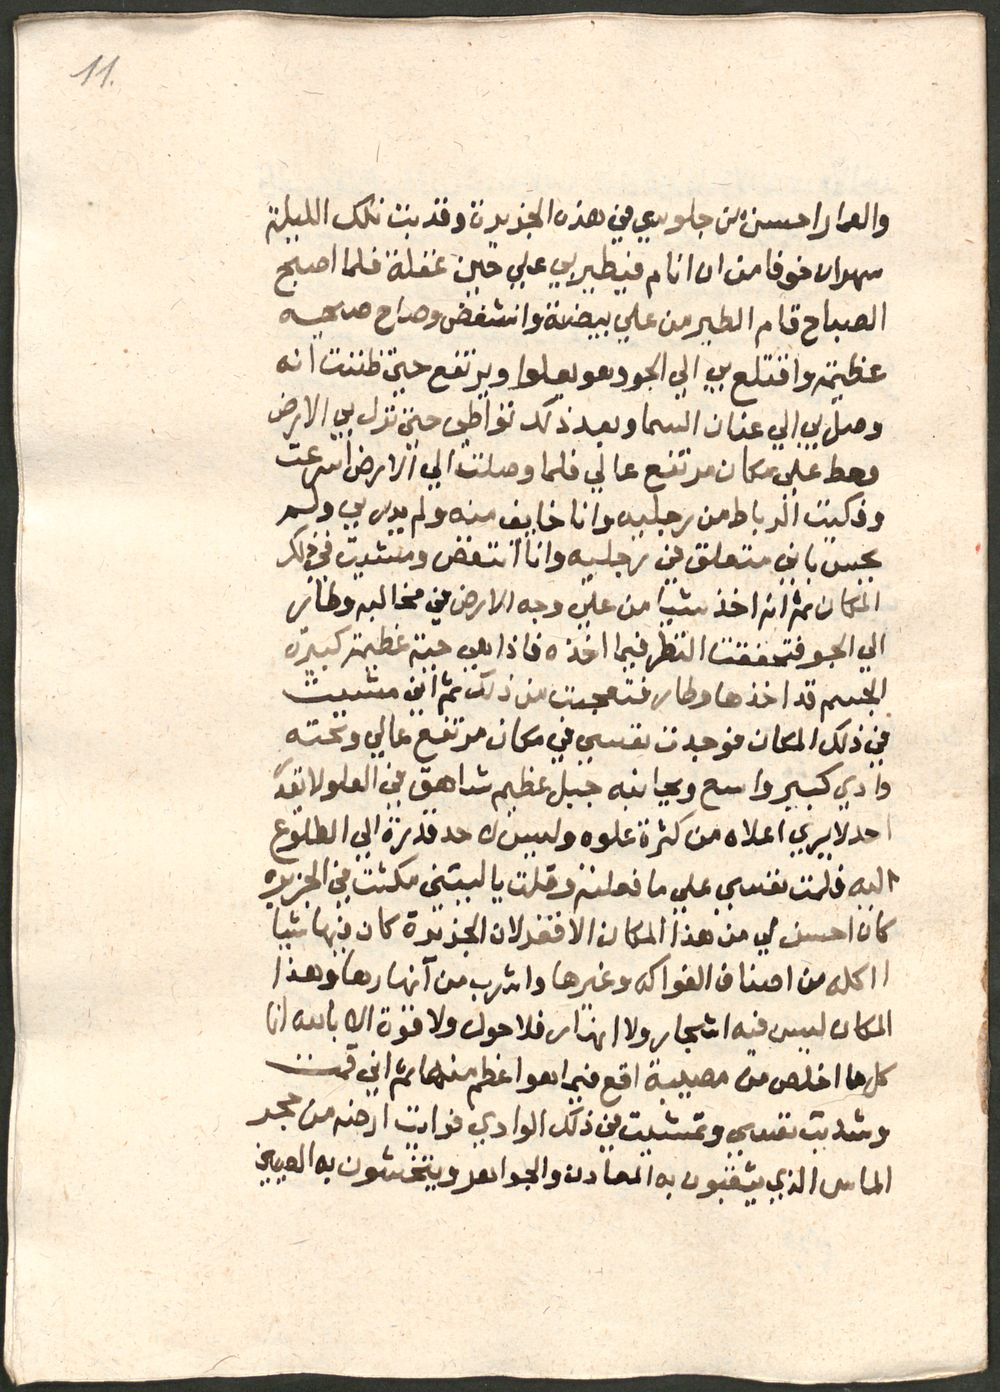 11.
والعمار احسن من جلوسي في هذه الجزيرة وقد بت تلك الليلة
سهران خوفا من ان انام فيطير بي علي حين غفلة فلما اصبح
الصباح قام الطير من علي بيضته وانتفض وصاح صيحه
عظيمة واقتلع بي الي الجو وهو يعلوا ويرتفع حتي ظننت انه
وصل بي الي عنان السما وبعد ذلك تواطي حتي نزل بي الارض
وحط علي مكان مرتفع عالي فلما وصلت الي الارض اسرعت
وفكيت الرباط من رجليه وانا خايف منه ولم يدر بي ولم
يحس باني متعلق في رجليه وانا انتفض ومشيت في ذلك
المكان ثم انه اخذ شيا من علي وجه الارض في مخالبه وطار
الي الجو فتحققت النظر فيما اخذه فاذا هي حية عظيمة كبيرة
الجسم قد اخذها وطار فتعجبت من ذلك ثم اني مشيت
في ذلك المكان فوجدت نفسي في مكان مرتفع عالي وتحته
وادي كبير واسع وبجانبه جبل عظيم شاهق في العلو لا يقدر
احد لا يري اعلاه من كثرة علوه وليس لاحد قدرة الي الطلوع
اليه فلمت نفسي علي ما فعلته وقلت يا ليتني مكثت في الجزيره
كان احسن لي من هذا المكان الاقفر لان الجزيرة كان فيها شيا
ااكله من اصناف الفواكه وغيرها واشرب من آنهارها وهذا
المكان ليس فيه اشجار ولا انهار فلا حول ولا قوة الا بالله انا
كل ما اخلص من مصيبة اقع فيما هوا اعظم منها ثم اني قمت
وشديت نفسي وتمشيت في ذلك الوادي فرايت ارضه من حجر
الماس الذي يثقبون به المعادن والجواهر وينقشون به الصيني